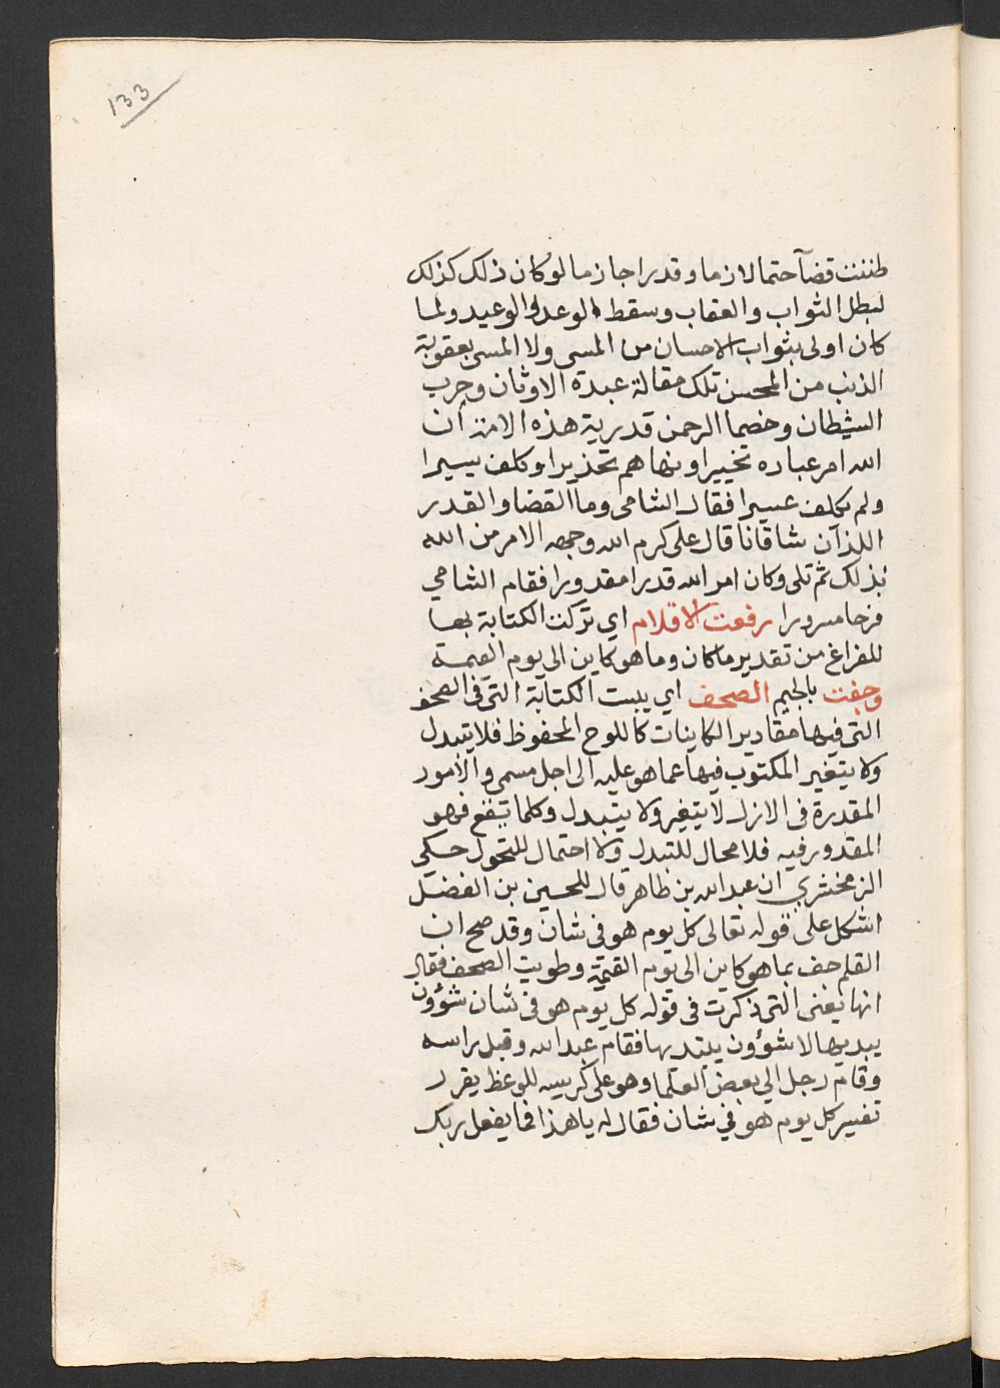 133
ظننت قضآ حتما لازما وقدرا جازما لو كان ذلك كذلك
لبطل الثواب والعقاب وسقط الوعد والوعيد ولما
كان اولى بثواب الاحسان من المسى ولا المسى بعقوبة
الذنب من المحسن تلك مقالة عبدة الاوثان وحزب
الشيطان وخصما الرحمن قدرية هذه الامة ان
الله امر عباده تخييرا ونهاهم تحذيرا وكلف يسيرا
ولم يكلف عسيرا فقال الشامى وما القضا والقدر
اللذآن ساقانا قال على كرم الله وجهه الامر من الله
بذلك ثم تلى وكان امر الله قدرا مقدورا فقام الشامي
فرحا مسرورا رفعت الاقلام اي تركت الكتابة بها
للفراغ من تقدير ما كان وما هو كاين الى يوم القيمة
وجفت بالجيم الصحف اي يبست الكتابة التى فى الصحف
التى فيها مقادير الكاينات كاللوح المحفوظ فلا يتبدل
ولا يتغير المكتوب فيها عما هو عليه الى اجل مسمى والأمور
المقدرة فى الازل لا يتغير ولا يتبدل وكلما يقع فهو
المقدور فيه فلا مجال للتبدل ولا احتمال للتحول حكي
الزمخشري ان عبد الله بن طاهر قال للحسين بن الفضل
اشكل على قوله تعالى كل يوم هو فى شان وقد صح ان
القلم جف بما هو كاين الى يوم القيمة وطويت الصحف فقال
انها يعنى التى ذكرت فى قوله كل يوم هو فى شان شؤون
يبديها لا شؤون يبتديها فقام عبد الله وقبل راسه
وقام رجل الي بعض العلما وهو على كرسيه للوعظ يقرر
تفسير كل يوم هو في شان فقال له يا هذا فما يفعل ربك